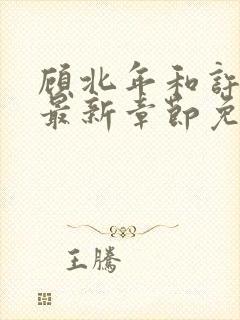 顾北年和许
最新章节免
王腾